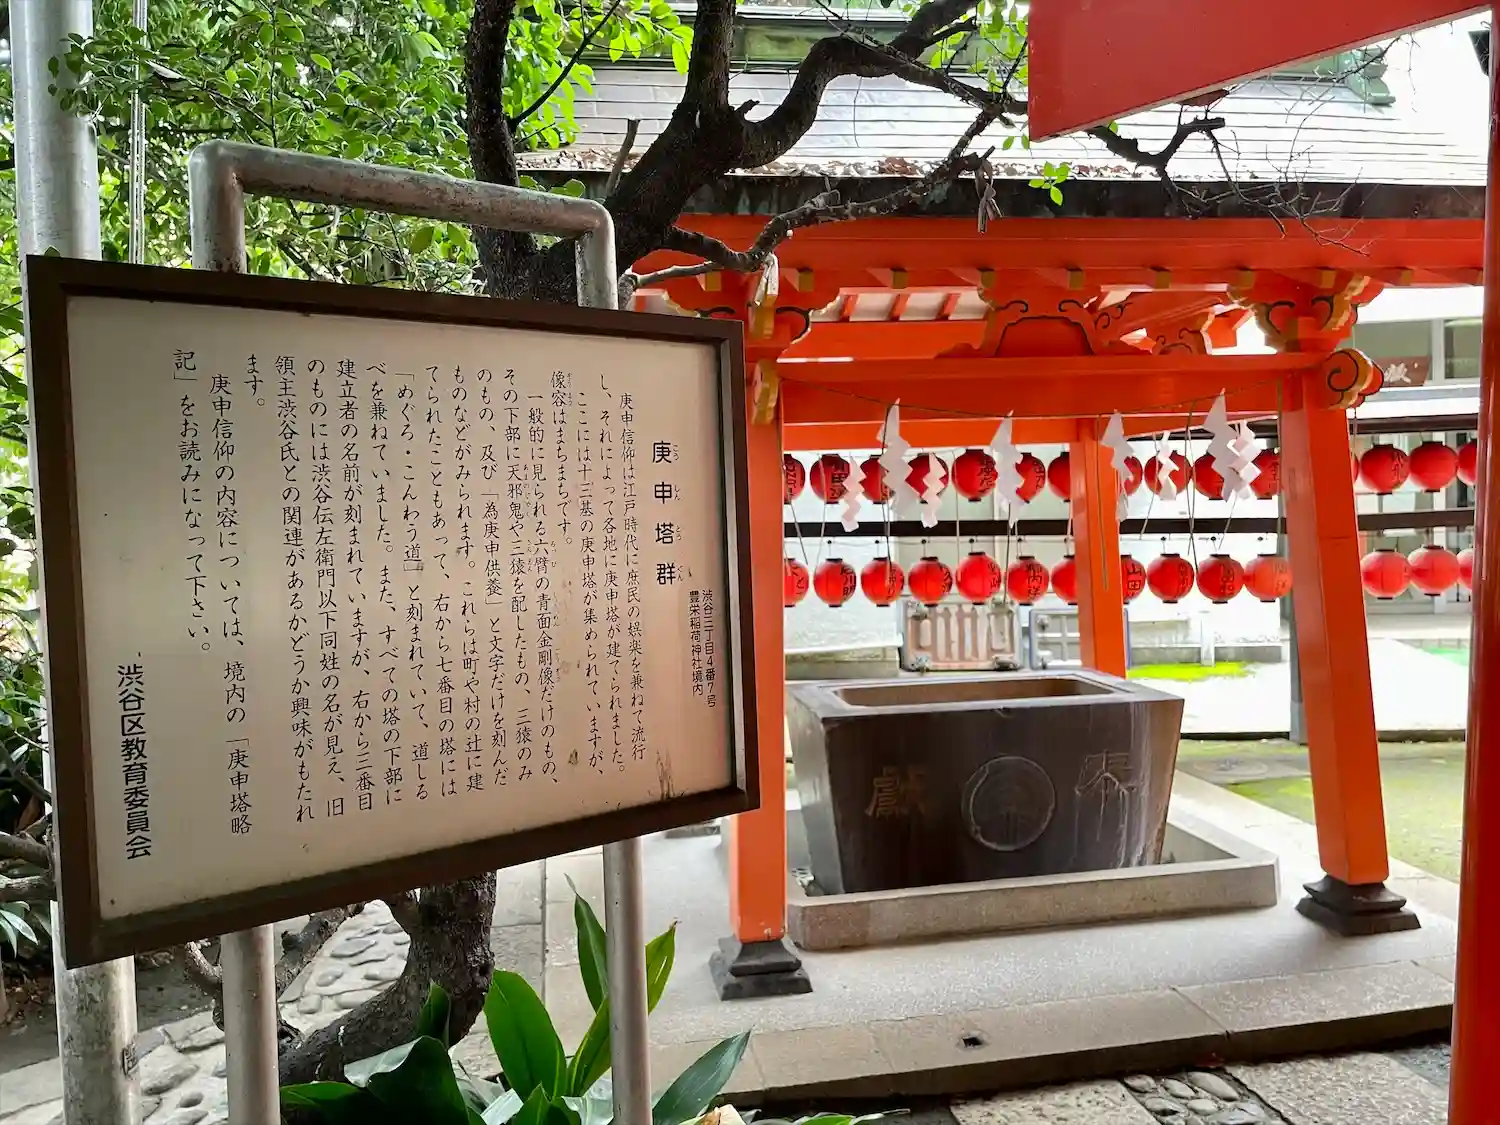 庚申塔群
渋谷三丁目4番7号
豊栄稲荷神社境内
庚申信仰は江戸時代に庶民の娯楽を兼ねて流行
し、それによって各地に庚申塔が建てられました。
ここには十三基の庚申塔が集められていますが、
像容はまちまちです。
一般的に見られる六臂の青面金剛像だけのもの、
その下部に天邪鬼や三猿を配したもの、三猿のみ
のもの、及び「為庚申供養」と文字だけを刻んだ
ものなどがみられます。これらは町や村の辻に建
てられたこともあって、右から七番目の塔には
「めぐろ・こんわう道」と刻まれていて、道しる
べを兼ねていました。また、すべての塔の下部に
建立者の名前が刻まれていますが、右から三番目
のものには渋谷伝左衛門以下同姓の名が見え、旧
領主渋谷氏との関連があるかどうか興味がもたれ
ます。
庚申信仰の内容については、境内の「庚申塔略
記」をお読みになって下さい。
渋谷区教育委員会
奉
献
山田